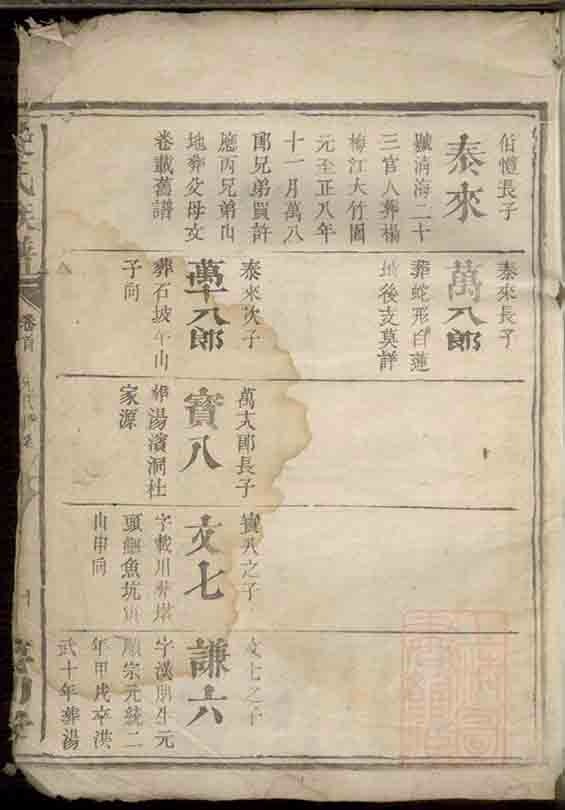 伯愷長子
泰來
號清海二十
三官人葬楊
梅江大竹園
元至正八年
十一月萬八
郎兄弟買許
應丙兄弟山
地葬父母文
卷載舊譜
泰來長子
萬八郎
葬蛇形白蓮
地後支莫詳
泰來次子
萬十八郎
葬石坡午山
子向
長子
寳八
葬湯濱洞杜
家源
寳八之子
文七
字載川葬塔
頭鯉魚坑
山申向
文七之子
謙六
字漢朋生元
順宗元統二
年甲戌卒洪
武十年葬湯
氏族譜
卷首